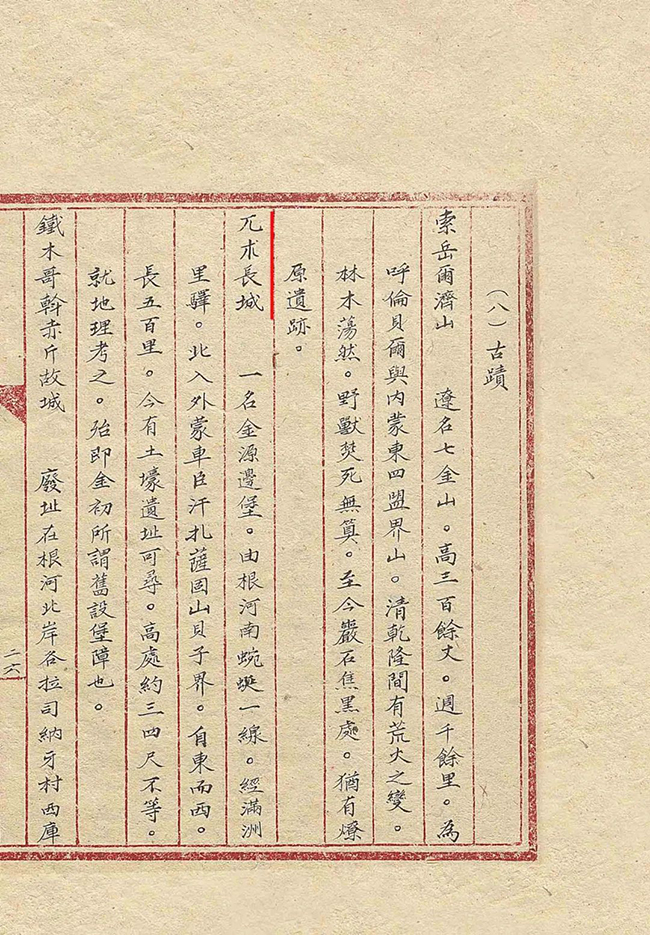 （八）古蹟
索岳爾濟山　遼名七金山。高三百餘丈。週千餘里。為
呼倫貝爾與內蒙東四盟界山。清乾隆間有荒火之變。
林木蕩然。野獸焚死無算。至今巖石焦黑處。猶有燎
原遺跡。
兀朮長城　一名金源邊堡。由根河南蜿蜒一線。經滿洲
里驛。北入外蒙車臣汗扎薩固山貝子界。自東而西。
長五百里。今有土壕遺址可尋。高處約三四尺不等。
就地理考之。殆即金初所謂舊設堡障也。
鐵木哥斡赤斤故城　廢址在根河北岸各拉司納牙村西庫
二六